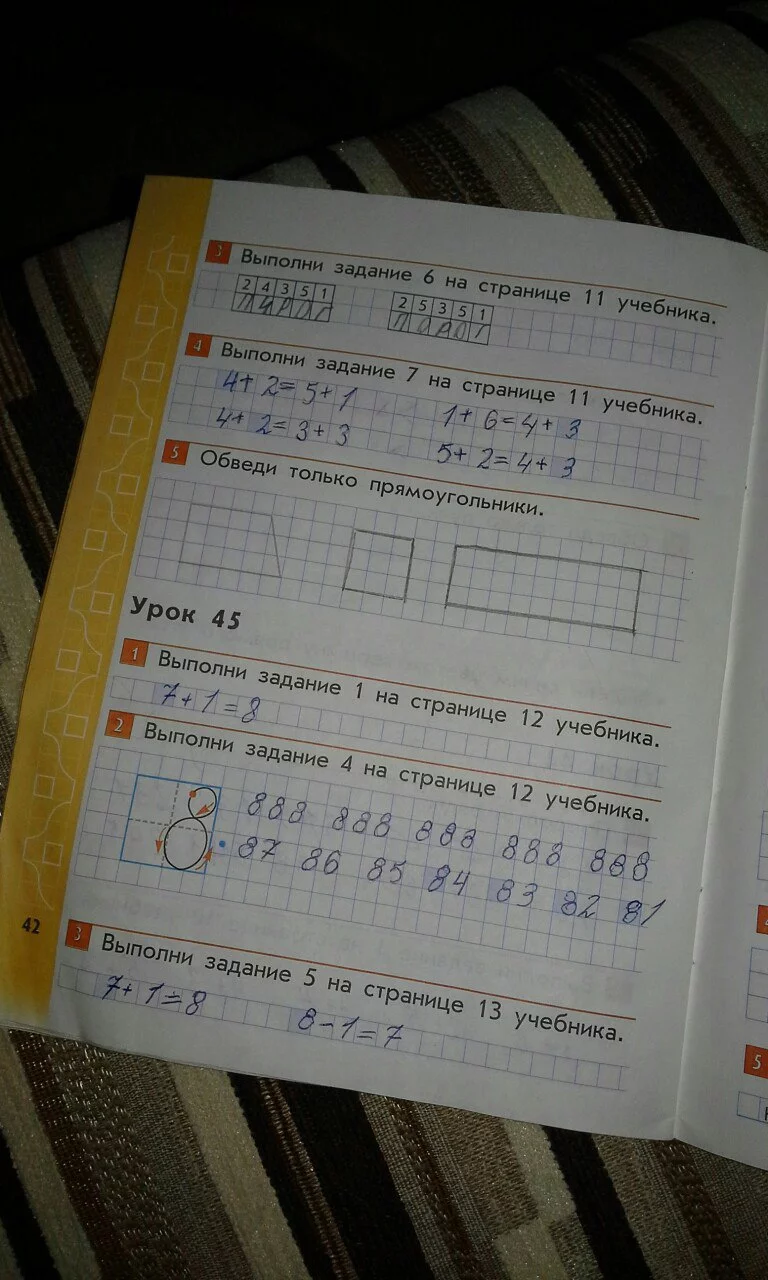 3 Выполни задание 6 на странице 11 учебника.
2 4 3 5 1 2 5 3 5 1
4 Выполни задание 7 на странице 11 учебника.
4+2=5+1 1+6=4+3
4+2=3+3 5+2=4+3
5 Обведи только прямоугольники.
Урок 45
1 Выполни задание 1 на странице 12 учебника.
7+1=8
2 Выполни задание 4 на странице 12 учебника.
888 888 888 888 888
87 86 85 84 83 82 81
42
3 Выполни задание 5 на странице 13 учебника.
7+1=8 8-1=7
5